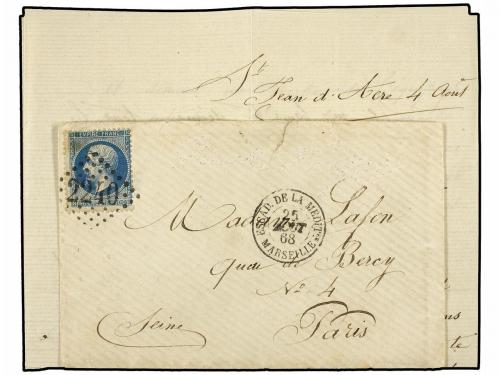 St Jean d'Acre 4 Août
EMPIRE FRANC
2240
ESCAD. DE LA MEDITee
25
AOUT
68
MARSEILLE
Madame Lafon
quai de Bercy
No 4
Seine
Paris